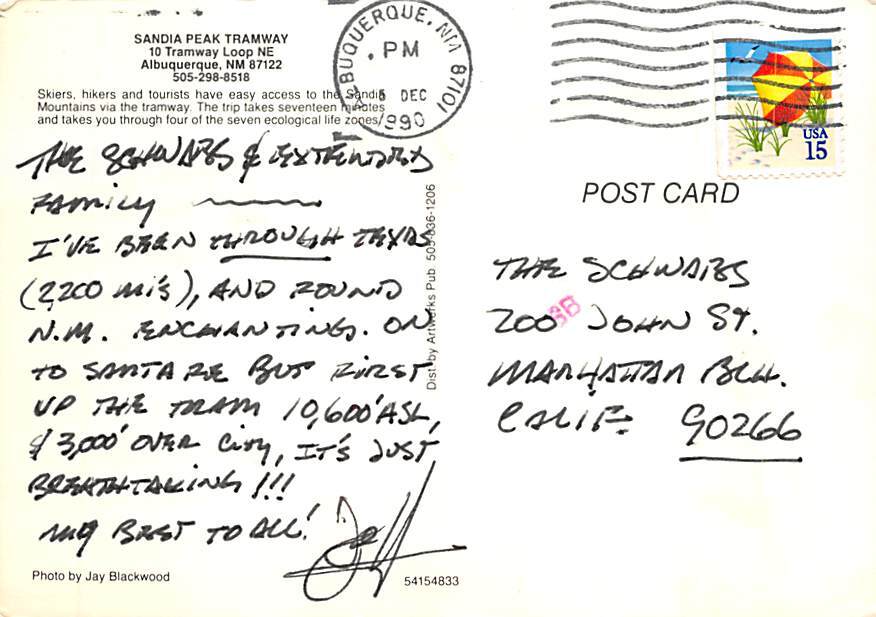 SANDIA PEAK TRAMWAY
10 Tramway Loop NE
Albuquerque, NM 87122
505-298-8518
Skiers, hikers and tourists have easy access to the Sandia
Mountains via the tramway. The trip takes seventeen minutes
and takes you through four of the seven ecological life zones.
ALBUQUERQUE, NM 87101
PM
5 DEC
1990
USA
15
THE SCHWABS & EXTENDED
FAMILY
I'VE BEEN THROUGH TEXAS
(2,200 mi's), AND FOUND
N.M. ENCHANTING. ON
TO SANTA FE BUT FIRST
UP THE TRAM 10,600' ASL,
& 3,000' OVER CITY, IT'S JUST
BREATHTAKING!!!
MY BEST TO ALL!
Jeff
Photo by Jay Blackwood
54154833
Dist. by Artworks Pub. 505-836-1206
POST CARD
THE SCHWABS
200 JOHN ST.
MANHATTAN BCH.
CALIF. 90266
BB